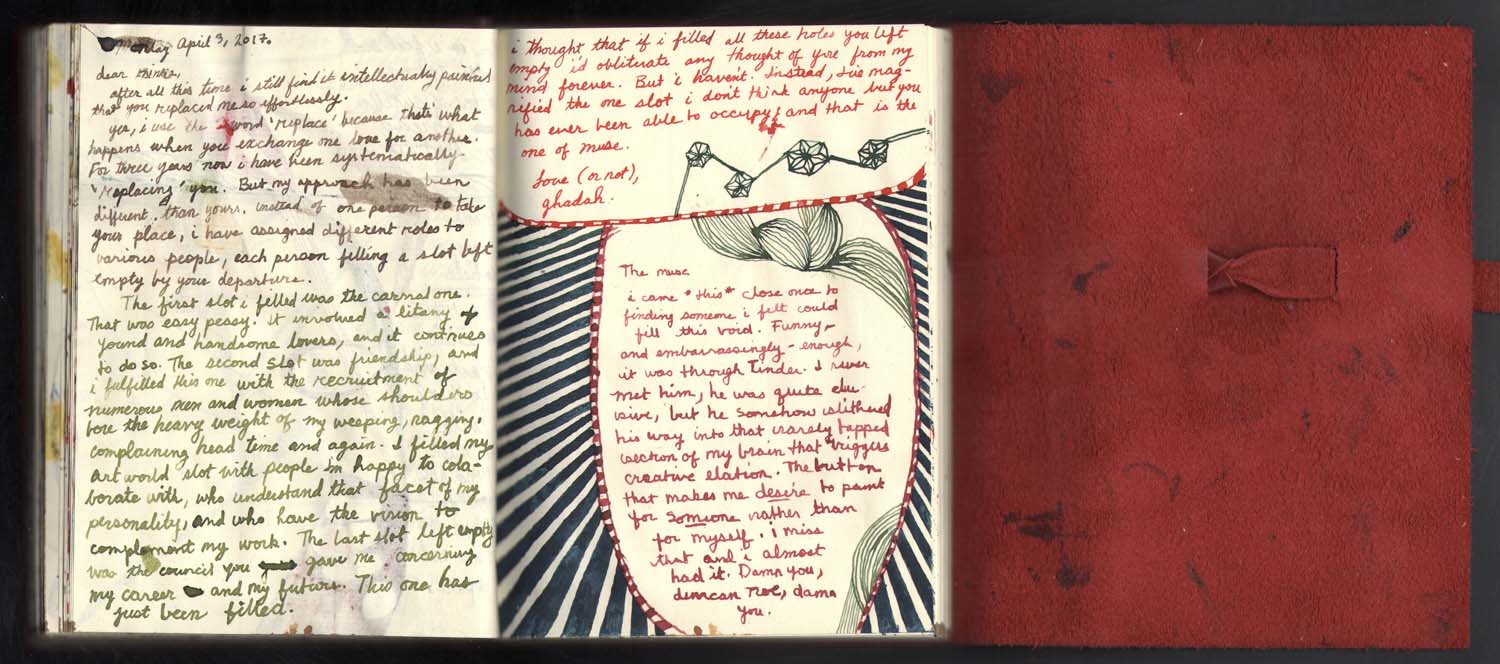 monday April 3, 2017.
dear
after all this time i still find it intellectually painful
that you replaced me so effortlessly.
yes, i use the word 'replace' because that's what
happens when you exchange one love for another.
For three years now i have been systematically
'replacing' you. But my approach has been
different than yours. instead of one person to take
your place, i have assigned different roles to
various people, each person filling a slot left
empty by your departure.
The first slot i filled was the carnal one.
That was easy peasy. It involved a litany of
yound and handsome lovers, and it continues
to do so. The second slot was friendship, and
i fulfilled this one with the recruitment of
numerous men and women whose shoulders
bore the heavy weight of my weeping, ragging,
complaining head time and again. I filled my
art world slot with people i'm happy to cola-
borate with, who understand that facet of my
personality, and who have the vision to
complement my work. The last slot left empty
was the council you gave me concerning
my career and my future. This one has
just been filled.
i thought that if i filled all these holes you left
empty i'd obliterate any thought of you from my
mind forever. But i haven't. Instead, i've mag-
nified the one slot i don't think anyone but you
has ever been able to occupy; and that is the
one of muse.
Love (or not),
ghadah.
The muse
i came *this* close once to
finding someone i felt could
fill this void. Funny-
and embarrassingly - enough,
it was through Tinder. I never
met him, he was quite elu-
sive, but he somehow slithered
his way into that rarely tapped
section of my brain that triggers
creative elation. The button
that makes me desire to paint
for someone rather than
for myself. i miss
that and i almost
had it. Damn you,
duncan roe, damn
you.